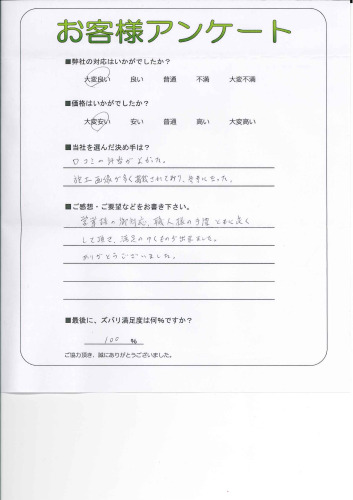 お客様アンケート
■弊社の対応はいかがでしたか?
大変良い 良い 普通 不満 大変不満
■価格はいかがでしたか?
大変安い 安い 普通 高い 大変高い
■当社を選んだ決め手は?
口コミの評価がよかった。
施工画像が多く掲載されており、参考になった。
■ご感想・ご要望などをお書き下さい。
営業様の御対応、職人様の手際 ともに良く
して頂き、満足のいくものが出来ました。
ありがとうございました。
■最後に、ズバリ満足度は何%ですか?
100 %
ご協力頂き、誠にありがとうございました。